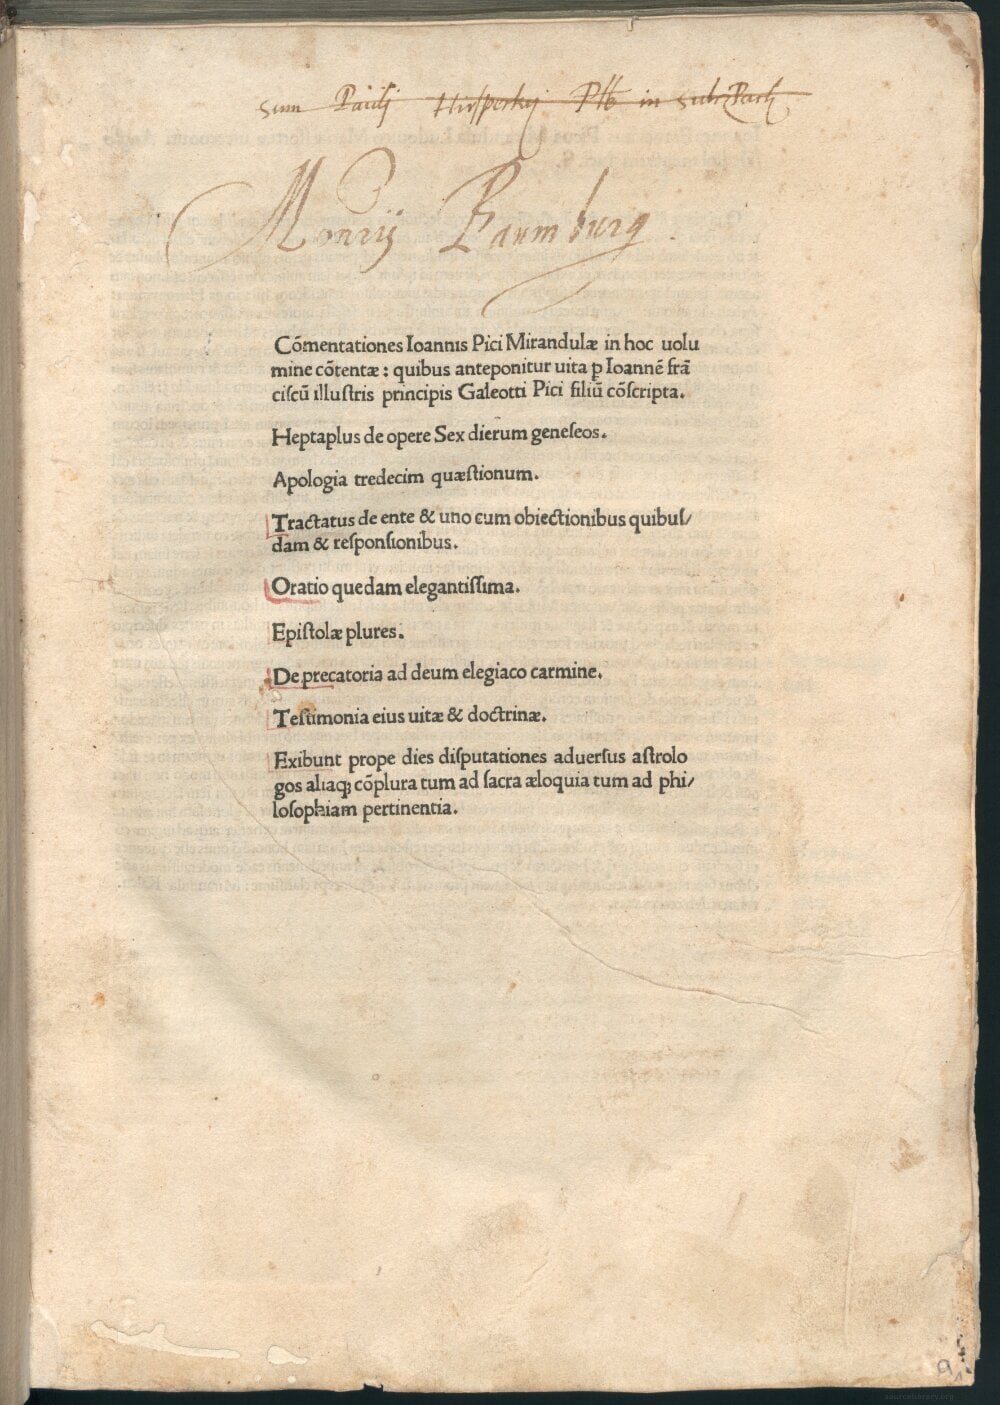 Sum Pauli Hirsperkij Pbb in Sulz Pach
Monrij Baumburg.
Cõmentationes Ioannis Pici Mirandulæ in hoc uolu
mine cõtentæ: quibus anteponitur uita p Ioannẽ frã
ciſcũ illuſtris principis Galeotti Pici filiũ cõſcripta.
Heptaplus de opere Sex dierum geneſeos.
Apologia tredecim quæſtionum.
Tractatus de ente & uno cum obiectionibus quibuſ/
dam & reſponſionibus.
Oratio quedam elegantiſſima.
Epiſtolæ plures.
De precatoria ad deum elegiaco carmine.
Teſtimonia eius uitæ & doctrinæ.
Exibunt prope dies diſputationes aduerſus aſtrolo
gos aliaqꝫ cõplura tum ad ſacra æloquia tum ad phi/
loſophiam pertinentia.
sourcelibrary.org